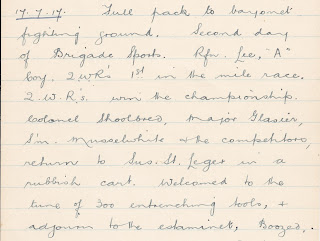 17.7.17. Full pack to bayonet
fighting ground. Second day
of Brigade Sports. Rfn. Lee, "A"
Coy. 2 WR's 1st in the mile race.
2.W.R's. win the championship.
Colonel Shoolbred, Major Glasier,
S/m. Musselwhite & the competitors,
return to Sus. St. Leger in a
rubbish cart. Welcomed to the
tune of 300 entrenching tools, +
adjourn to the estaminet, Boozed.